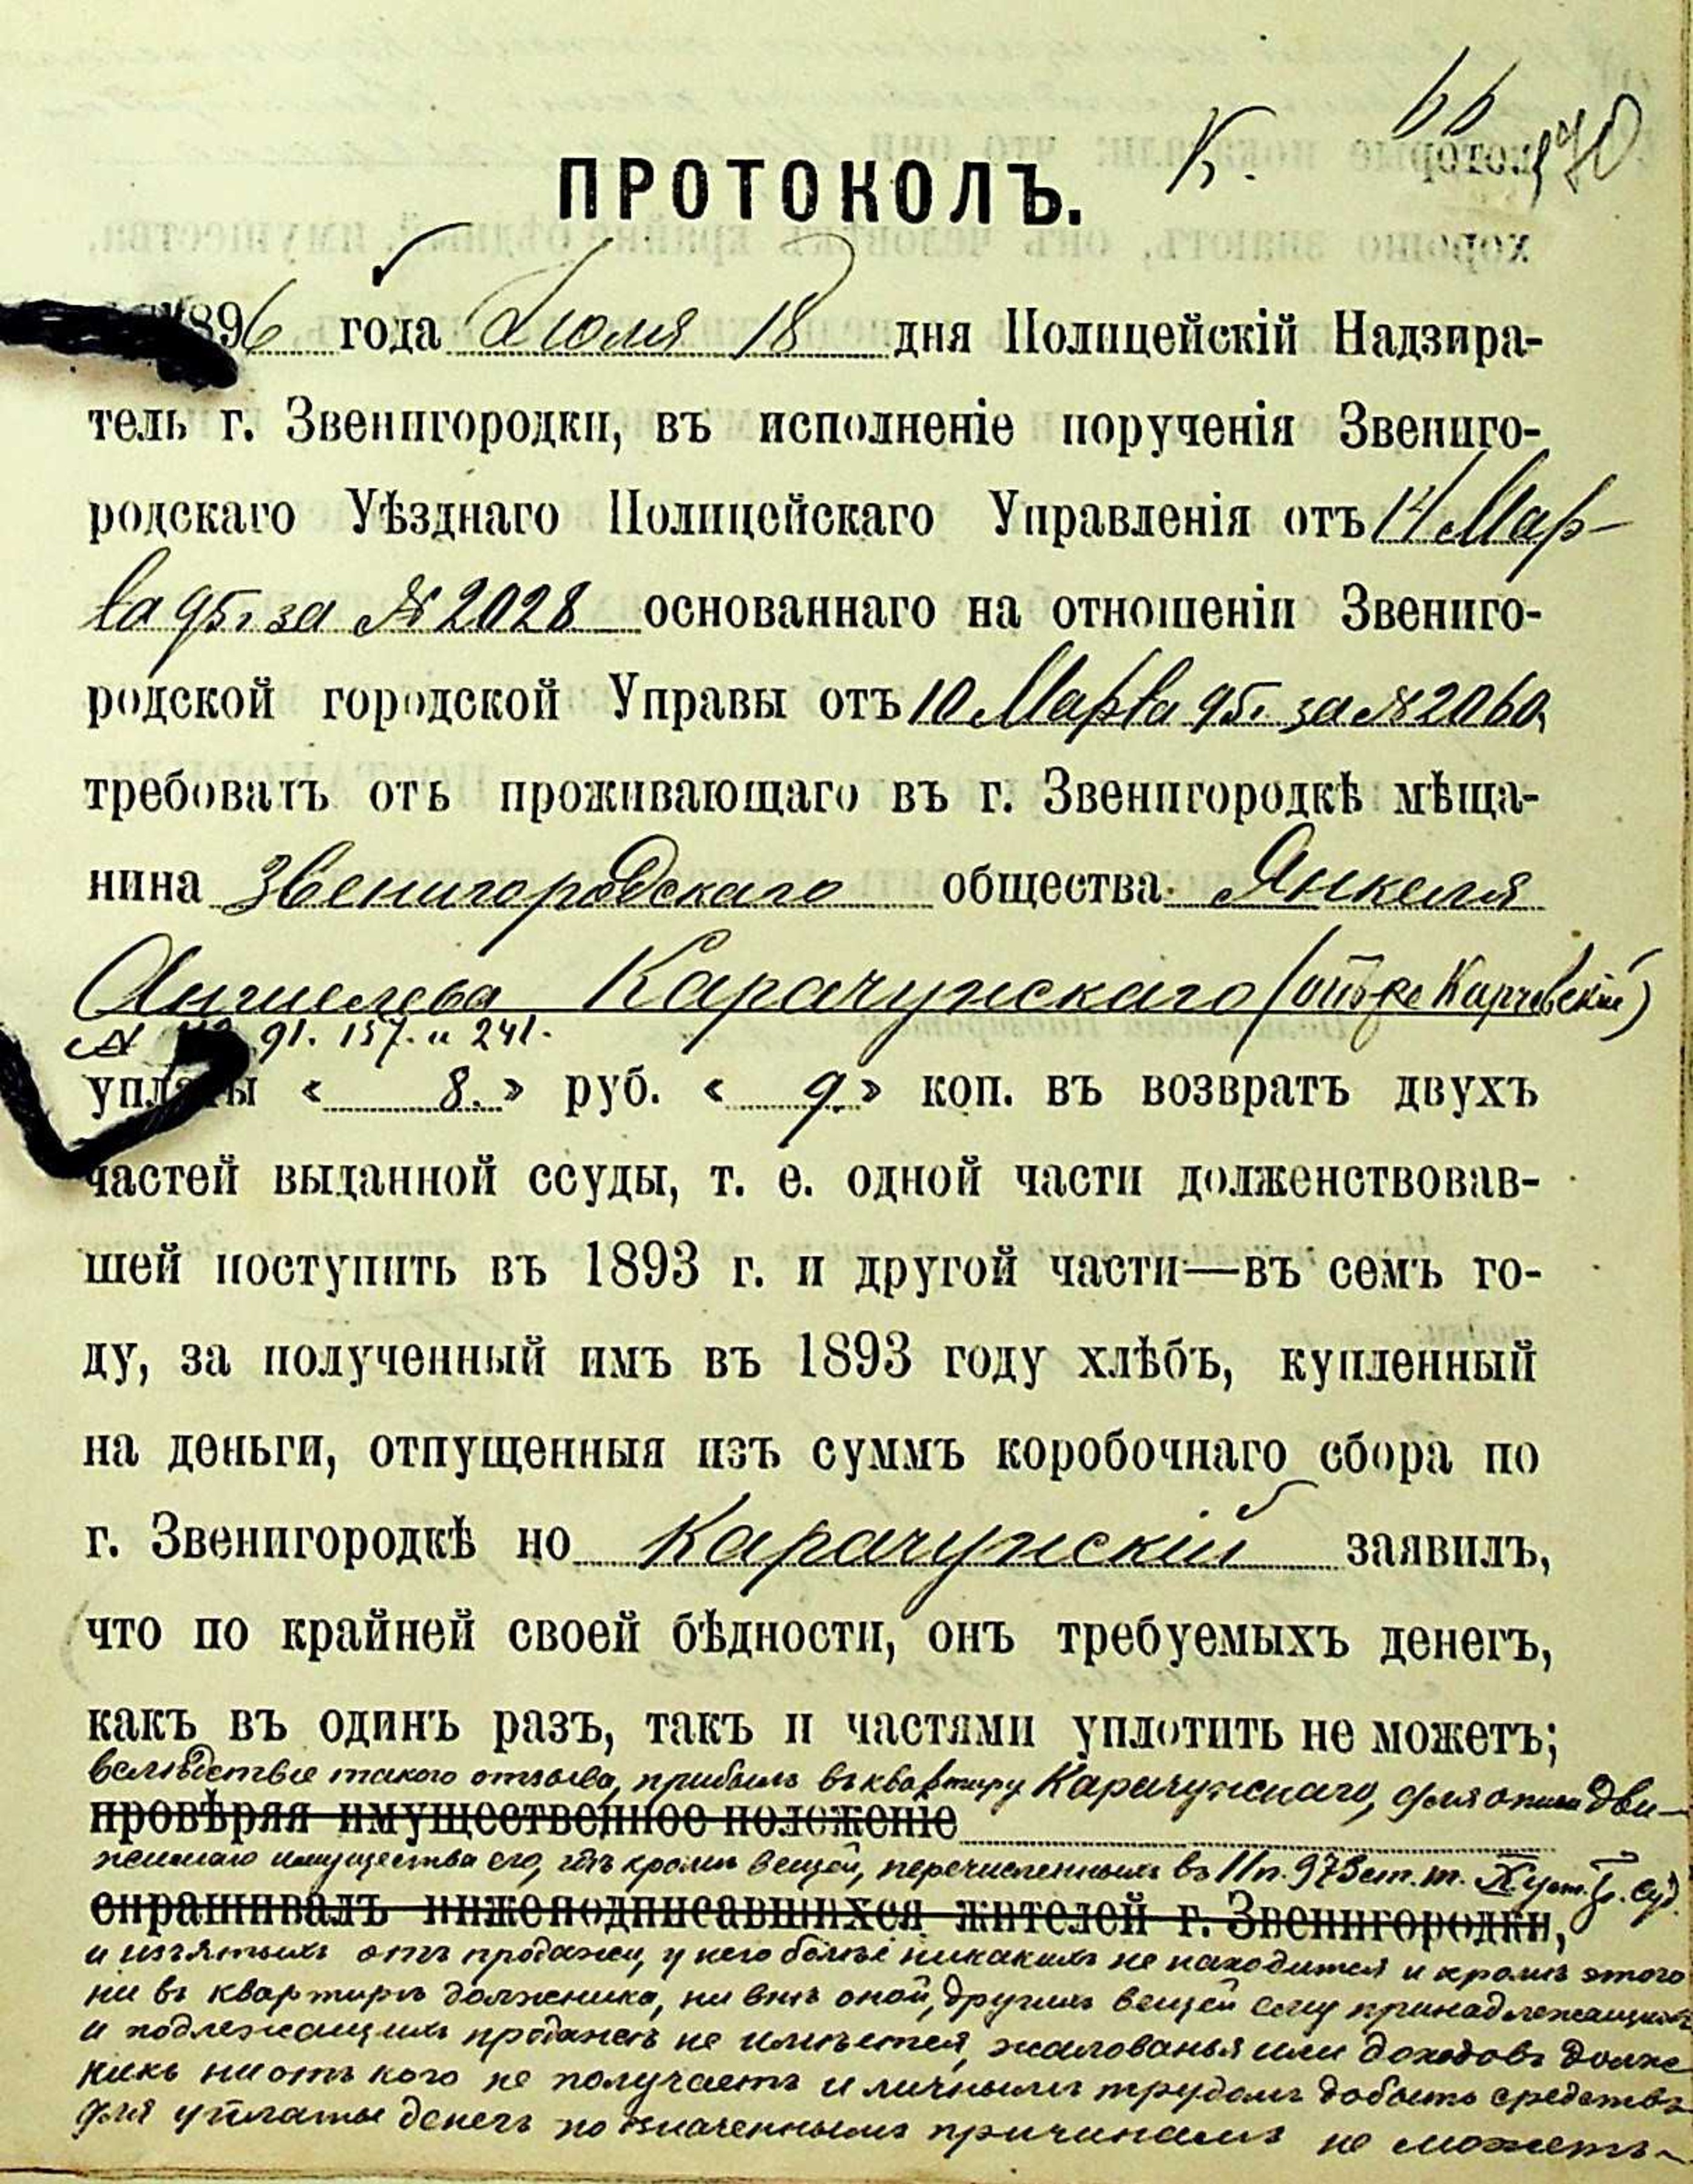 66
К. 70
ПРОТОКОЛЪ.
1896 года Іюля 18 дня Полицейскій Надзира-
тель г. Звенигородки, въ исполненіе порученія Звениго-
родскаго Уѣзднаго Полицейскаго Управленія отъ 14 Мар-
та 95 г. за № 2028 основаннаго на отношеніи Звениго-
родской городской Управы отъ 10 Марта 95 г. за № 2060,
требовалъ отъ проживающаго въ г. Звенигородкѣ мѣща-
нина Звенигородскаго общества Янкеля
Аншелева Карачунскаго (онъ же Карчевскій)
№ 91. 157. и 241.
уплаты « 8. » руб. « 9. » коп. въ возвратъ двухъ
частей выданной ссуды, т. е. одной части долженствовав-
шей поступить въ 1893 г. и другой части—въ семъ го-
ду, за полученный имъ въ 1893 году хлѣбъ, купленный
на деньги, отпущенныя изъ суммъ коробочнаго сбора по
г. Звенигородкѣ но Карачунскій заявилъ,
что по крайней своей бѣдности, онъ требуемыхъ денегъ,
какъ въ одинъ разъ, такъ и частями уплотить не можетъ;
вслѣдствіе такого отзыва, прибылъ въ квартиру Карачунскаго, для описи дви-
провѣряя имущественное положеніе
жимаго имущества его, гдѣ кромѣ вещей, перечисленныхъ въ 11 п. 973 ст. т. X уст. гр. суд.
спрашивалъ нижеподписавшихся жителей г. Звенигородки,
и изъятыхъ отъ продажи, у него болѣе никакихъ не находится и кромѣ этого
ни въ квартирѣ должника, ни внѣ оной, другихъ вещей ему принадлежащихъ
и подлежащихъ продажѣ не имѣется, жалованья или доходовъ долж
никъ ни отъ кого не получаетъ и личнымъ трудомъ добыть средствъ
для уплаты денегъ по значеннымъ причинамъ не можетъ